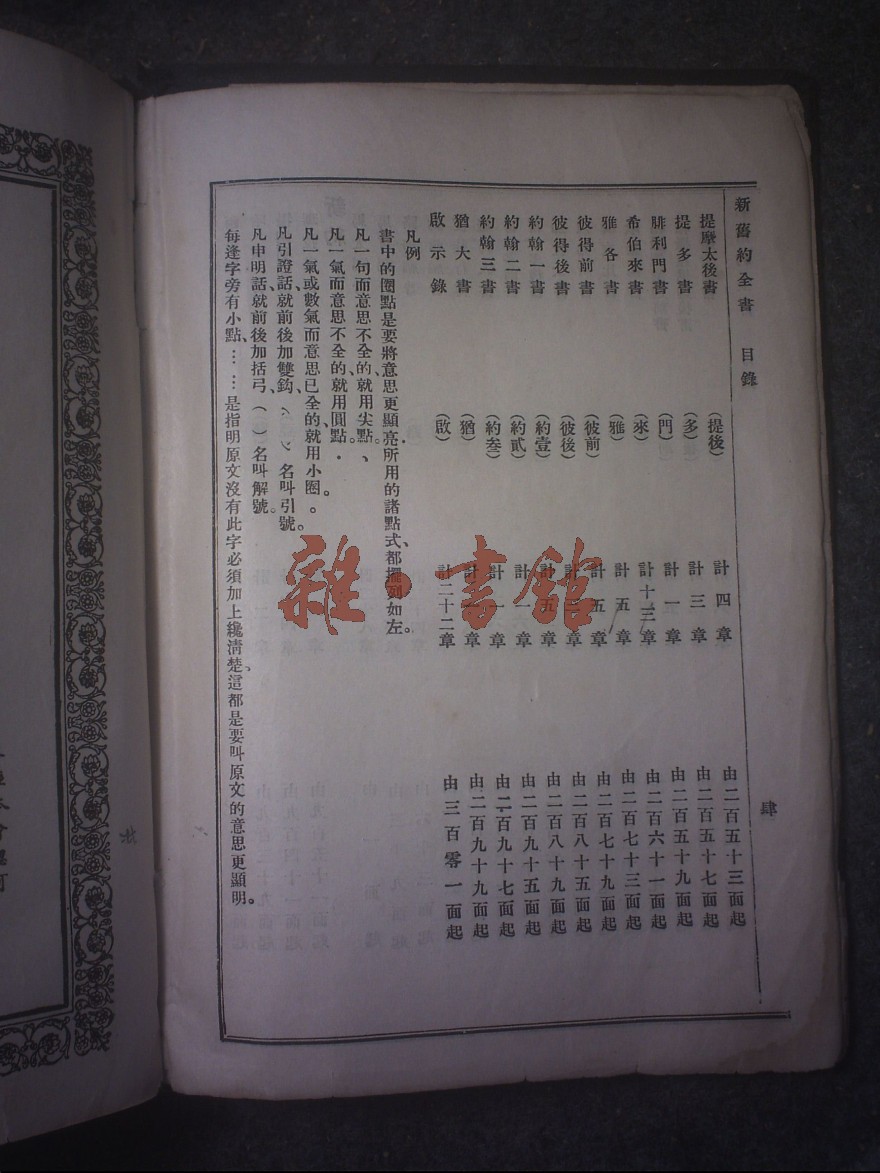 新舊約全書 目錄 肆
提摩太後書 (提後) 計四章 由二百五十三面起
提多書 (多) 計三章 由二百五十七面起
腓利門書 (門) 計一章 由二百五十九面起
希伯來書 (來) 計十三章 由二百六十一面起
雅各書 (雅) 計五章 由二百七十三面起
彼得前書 (彼前) 計五章 由二百七十九面起
彼得後書 (彼後) 計三章 由二百八十五面起
約翰一書 (約壹) 計五章 由二百八十九面起
約翰二書 (約貳) 計一章 由二百九十五面起
約翰三書 (約叁) 計一章 由二百九十七面起
猶大書 (猶) 計一章 由二百九十九面起
啟示錄 (啟) 計二十二章 由三百零一面起
凡例
書中的圈點是要將意思更顯亮．所用的諸點式、都擺列如左。
凡一句而意思不全的、就用尖點。、
凡一氣而意思不全的、就用圓點。．
凡一氣或數氣而意思已全的、就用小圈。。
凡引證話、就前後加雙鈎、〱 〱 名叫引號。
凡申明話、就前後加括弓、( ) 名叫解號。
每逢字旁有小點、……是指明原文沒有此字必須加上纔清楚、這都是要叫原文的意思更顯明。
雜·書館